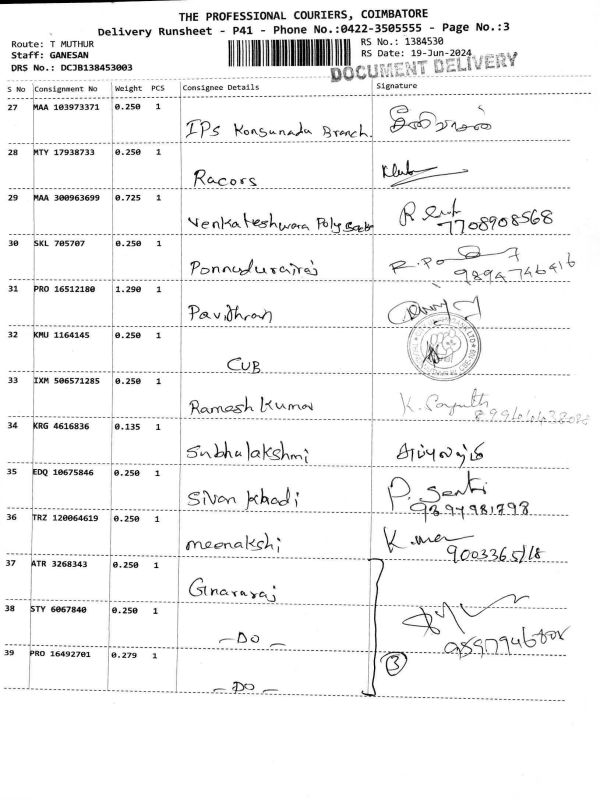 THE PROFESSIONAL COURIERS, COIMBATORE
Delivery Runsheet - P41 - Phone No.:0422-3505555 - Page No.:3
Route: T MUTHUR
RS No.: 1384530
Staff: GANESAN
RS Date: 19-Jun-2024
DRS No.: DCJB138453003
DOCUMENT DELIVERY
S No Consignment No Weight PCS Consignee Details Signature
27 MAA 103973371 0.250 1
IPS Konsunada Branch.
28 MTY 17938733 0.250 1
Racors
29 MAA 300963699 0.725 1
Venkateshwara Poly
7708908568
30 SKL 705707 0.250 1
Ponnudurairaj
9894746416
31 PRO 16512180 1.290 1
Pavithran
32 KMU 1164145 0.250 1
CUB
33 IXM 506571285 0.250 1
Ramesh Kumar
34 KRG 4616836 0.135 1
Subhulakshmi
35 EDQ 10675846 0.250 1
Sivan Khadi
36 TRZ 120064619 0.250 1
meenakshi
37 ATR 3268343 0.250 1
Gnanaraj
38 STY 6067840 0.250 1
- DO -
39 PRO 16492701 0.279 1
3
- DO -